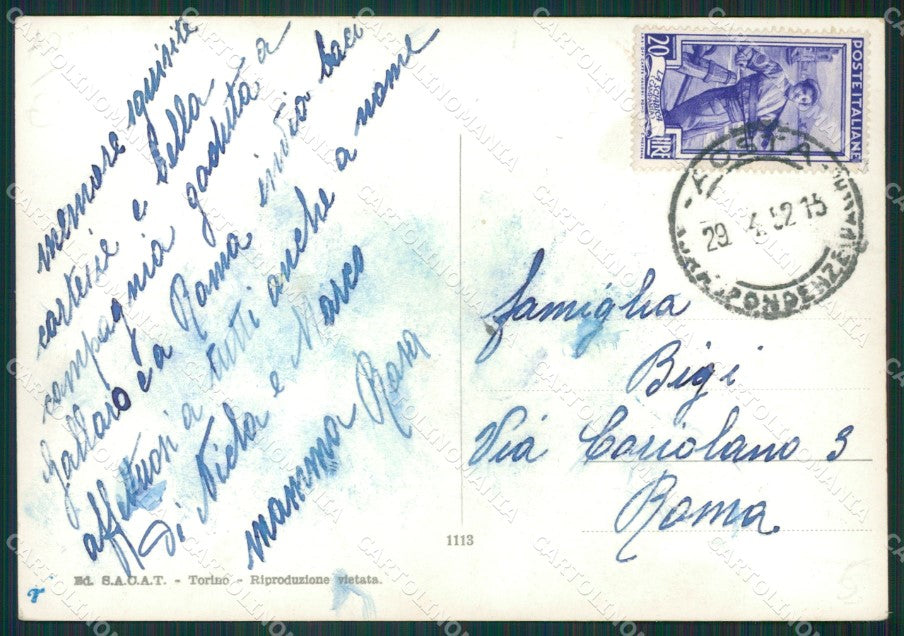 memore squisite
cortesie e bella
compagnia goduta a
Gallaro e a Roma invia baci
affettuosi a tutti anche a nome
di Niela e Marco
mamma Rosa
famiglia
Bigi
Via Coriolano 3
Roma
POSTE ITALIANE
20
LIRE
AOSTA
29. 4. 52 15
CORRISPONDENZE
1113
Ed. S.A.C.A.T. - Torino - Riproduzione vietata.
CARTOLINOMANIA